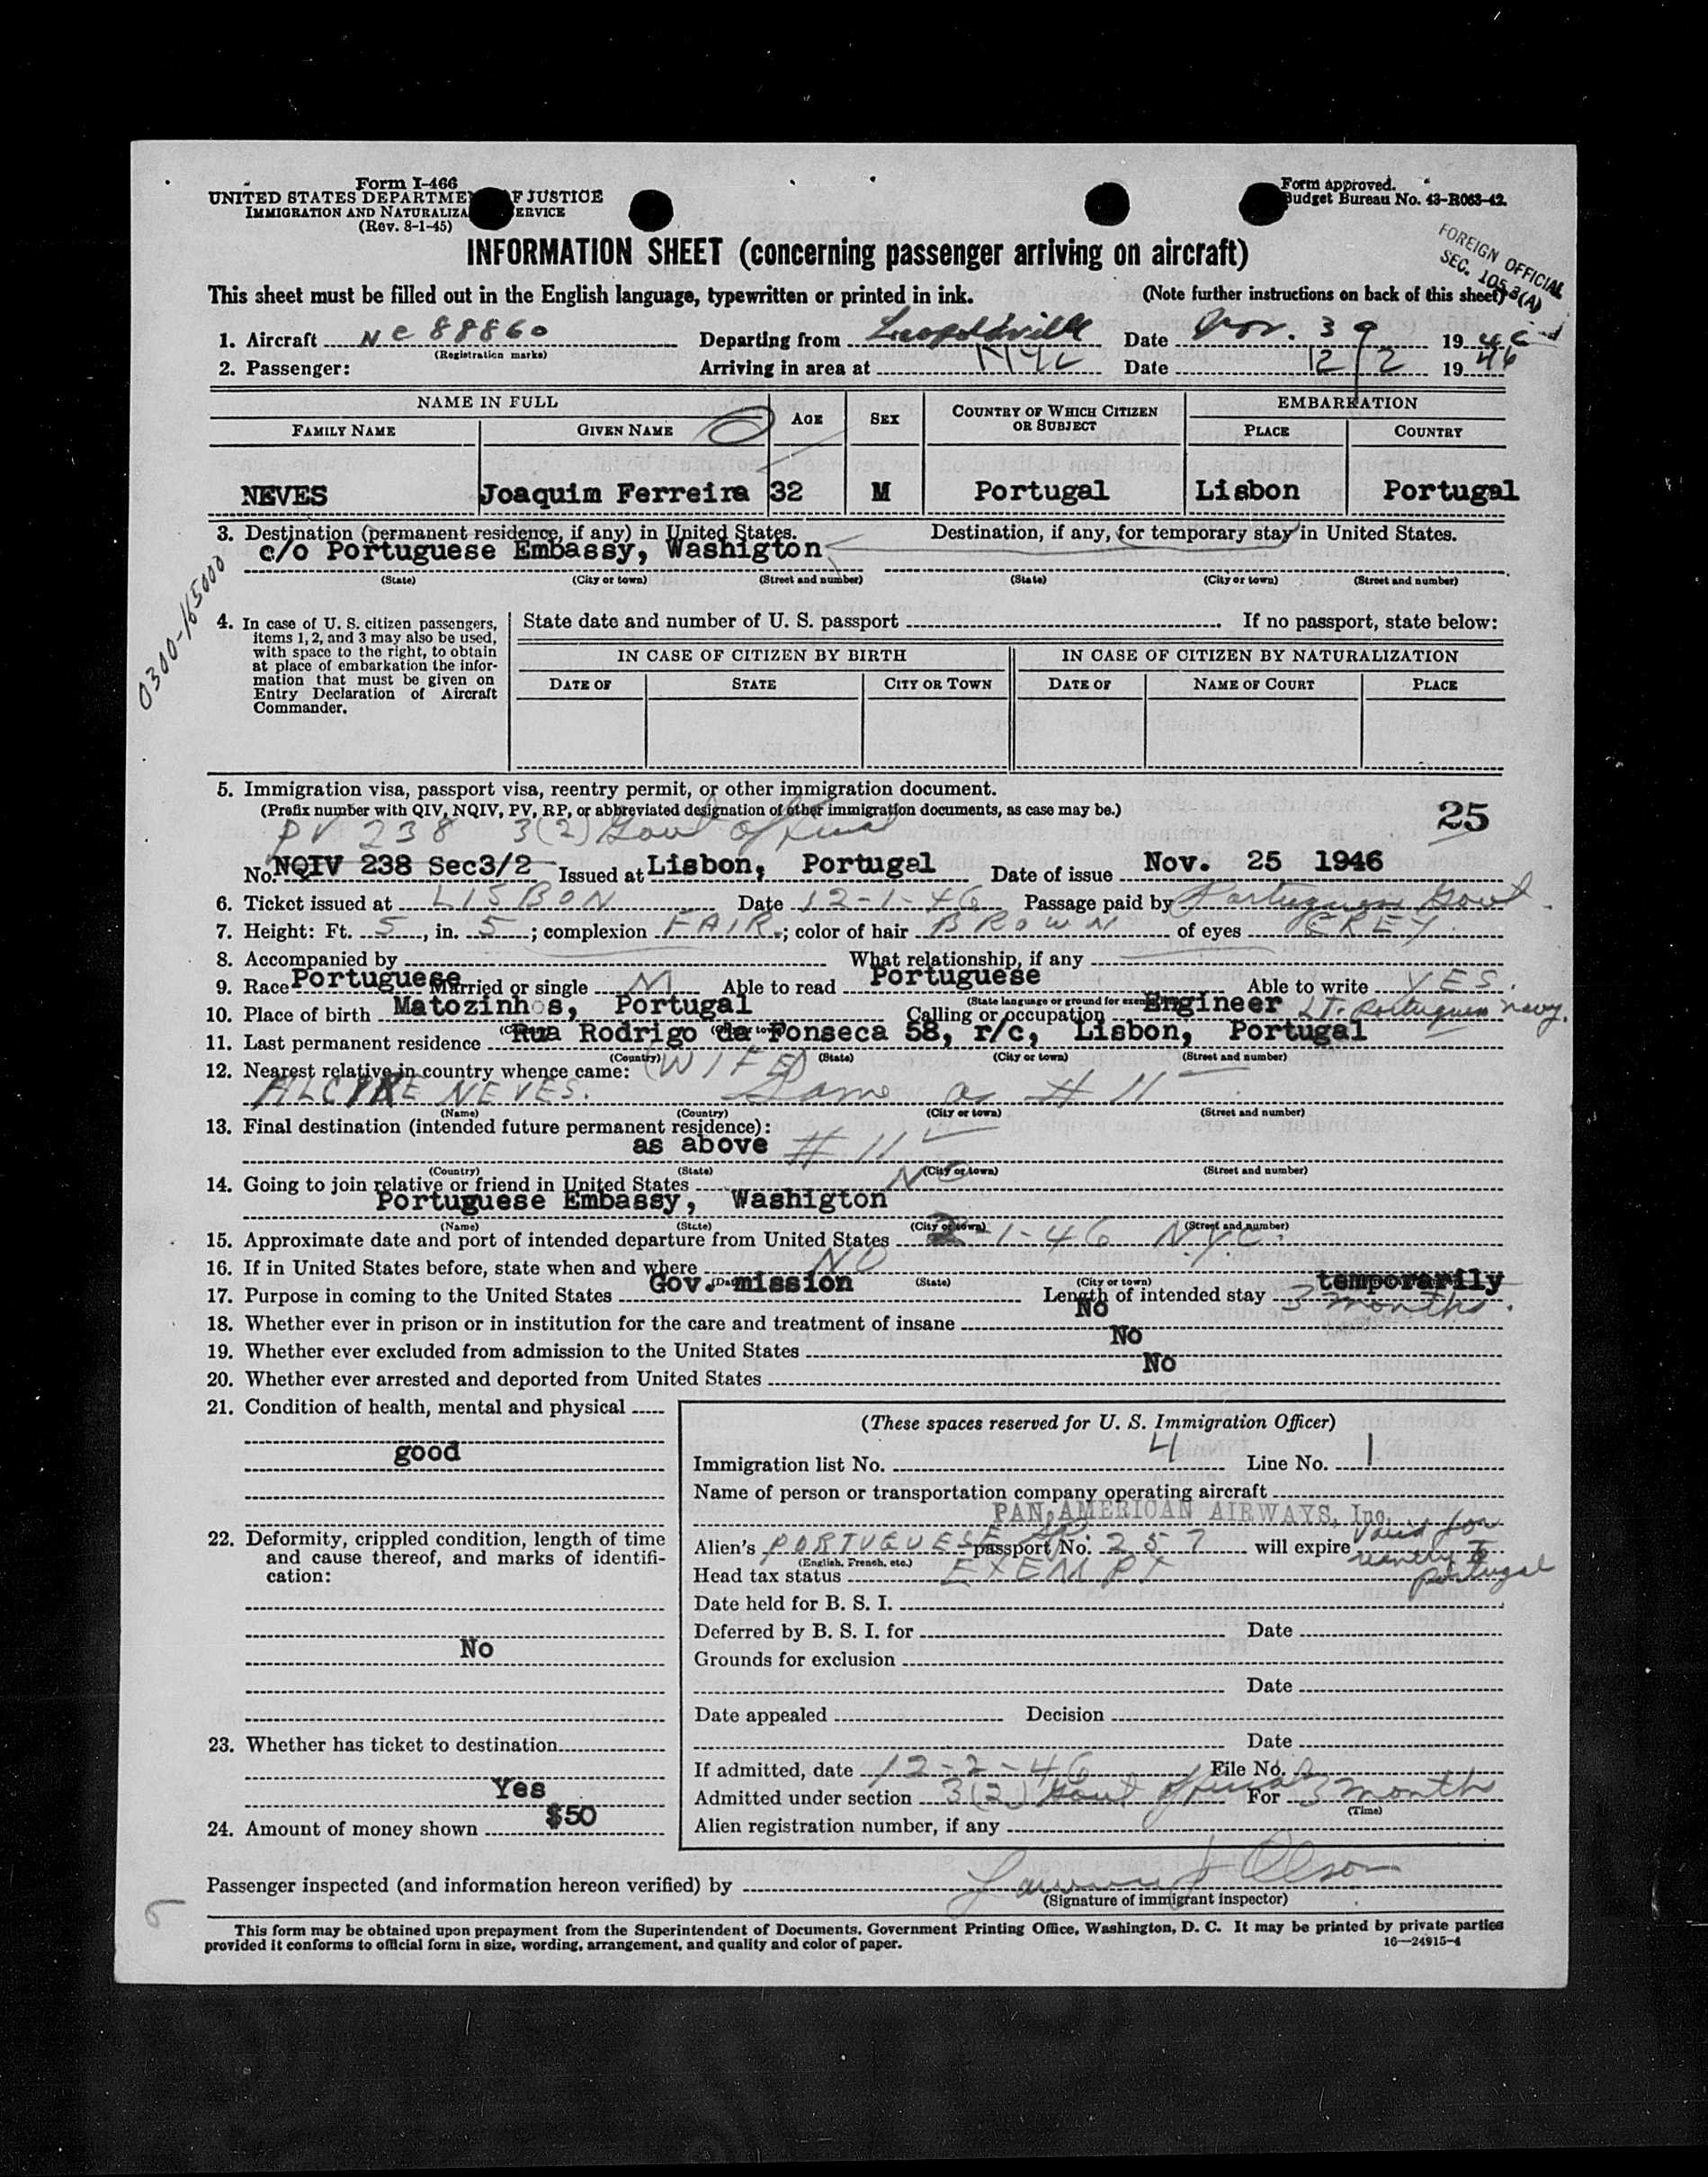 Form I-466
UNITED STATES DEPARTMENT OF JUSTICE
IMMIGRATION AND NATURALIZATION SERVICE
(Rev. 8-1-45)
Form approved.
Budget Bureau No. 43-R063-42.
INFORMATION SHEET (concerning passenger arriving on aircraft)
FOREIGN OFFICIAL
SEC. 105.3(A)
This sheet must be filled out in the English language, typewritten or printed in ink. (Note further instructions on back of this sheet)
1. Aircraft NC 88860 Departing from Leopoldville Date Nov. 19 46
(Registration marks)
2. Passenger: Arriving in area at NYC Date 12/2 19 46
NAME IN FULL AGE SEX COUNTRY OF WHICH CITIZEN OR SUBJECT EMBARKATION
FAMILY NAME GIVEN NAME PLACE COUNTRY
NEVES Joaquim Ferreira 32 M Portugal Lisbon Portugal
3. Destination (permanent residence, if any) in United States. Destination, if any, for temporary stay in United States.
c/o Portuguese Embassy, Washigton
(State) (City or town) (Street and number) (State) (City or town) (Street and number)
0300-165000
4. In case of U. S. citizen passengers, items 1, 2, and 3 may also be used, with space to the right, to obtain at place of embarkation the information that must be given on Entry Declaration of Aircraft Commander.
State date and number of U. S. passport If no passport, state below:
IN CASE OF CITIZEN BY BIRTH IN CASE OF CITIZEN BY NATURALIZATION
DATE OF STATE CITY OR TOWN DATE OF NAME OF COURT PLACE
5. Immigration visa, passport visa, reentry permit, or other immigration document.
(Prefix number with QIV, NQIV, PV, RP, or abbreviated designation of other immigration documents, as case may be.) 25
PV 238 3(2) Govt official
No. NQIV 238 Sec3/2 Issued at Lisbon, Portugal Date of issue Nov. 25 1946
6. Ticket issued at LISBON Date 12-1-46 Passage paid by Portuguese Govt.
7. Height: Ft. 5, in. 5; complexion FAIR; color of hair BROWN of eyes GREY
8. Accompanied by What relationship, if any
9. Race Portuguese Married or single M Able to read Portuguese Able to write YES.
(State language or ground for exemption)
10. Place of birth Matozinhos, Portugal Calling or occupation Engineer Lt. Portuguese Navy.
11. Last permanent residence Rua Rodrigo da Fonseca 58, r/c, Lisbon, Portugal
(Country) (State) (City or town) (Street and number)
12. Nearest relative in country whence came: (WIFE)
NEVES. Same as # 11
(Name) (Country) (City or town) (Street and number)
13. Final destination (intended future permanent residence):
as above # 11
(Country) (State) (City or town) (Street and number)
14. Going to join relative or friend in United States NO
Portuguese Embassy, Washigton
(Name) (State) (City or town) (Street and number)
15. Approximate date and port of intended departure from United States 2-1-46 N.Y.C.
16. If in United States before, state when and where NO
(Date) (State) (City or town)
17. Purpose in coming to the United States Gov. mission Length of intended stay temporarily 3 months.
18. Whether ever in prison or in institution for the care and treatment of insane No
19. Whether ever excluded from admission to the United States No
20. Whether ever arrested and deported from United States No
21. Condition of health, mental and physical
good
22. Deformity, crippled condition, length of time and cause thereof, and marks of identification:
No
23. Whether has ticket to destination
Yes
24. Amount of money shown $50
(These spaces reserved for U. S. Immigration Officer)
Immigration list No. 4 Line No. 1
Name of person or transportation company operating aircraft
PAN AMERICAN AIRWAYS, Inc.
Alien's PORTUGUESE passport No. 257 will expire valid for reentry to Portugal
(English, French, etc.)
Head tax status EXEMPT
Date held for B. S. I.
Deferred by B. S. I. for Date
Grounds for exclusion
Date
Date appealed Decision
Date
If admitted, date 12-2-46 File No.
Admitted under section 3(2) Govt official For 3 month
(Time)
Alien registration number, if any
Passenger inspected (and information hereon verified) by Olson
(Signature of immigrant inspector)
This form may be obtained upon prepayment from the Superintendent of Documents, Government Printing Office, Washington, D. C. It may be printed by private parties
provided it conforms to official form in size, wording, arrangement, and quality and color of paper.
16—24915-4